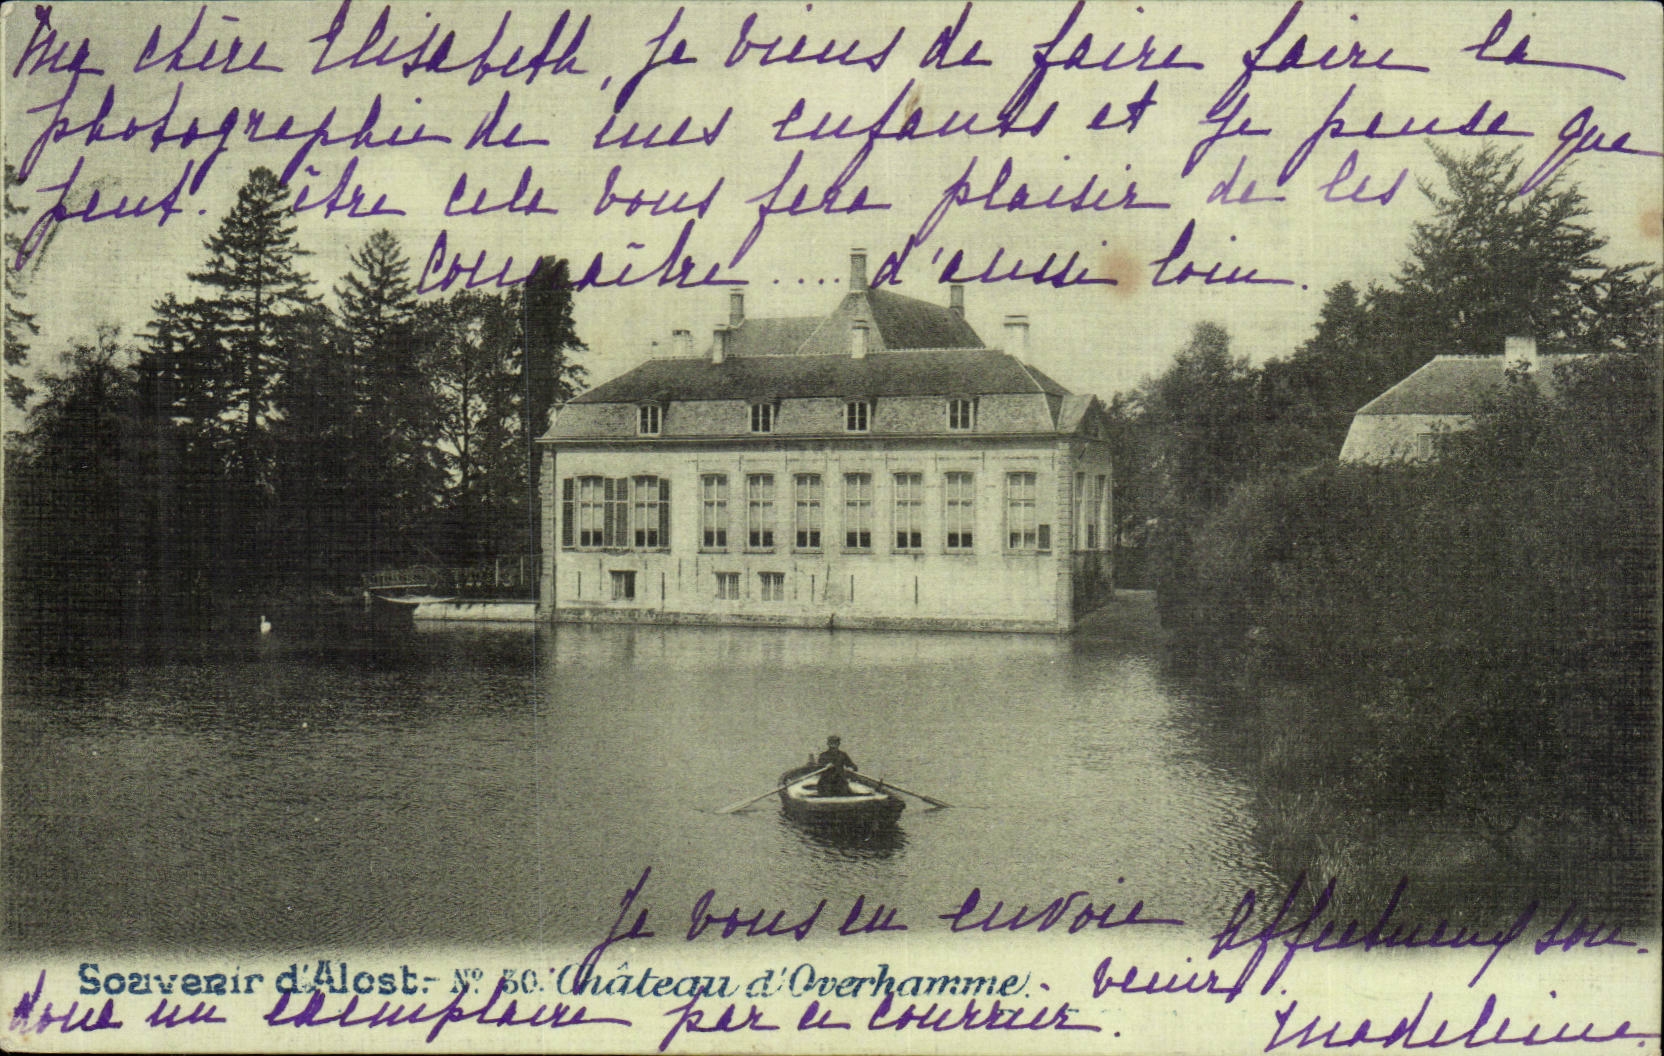 Ma chère Elisabeth, je viens de faire faire la
photographie de mes enfants et je pense que
peut-être cela vous fera plaisir de les
connaître .... d'aussi loin.
Je vous en envoie
donc un exemplaire par ce courrier.
Affectueux sou-
venir.
Madeleine.
Souvenir d'Alost.- No. 50. Château d'Overhamme.